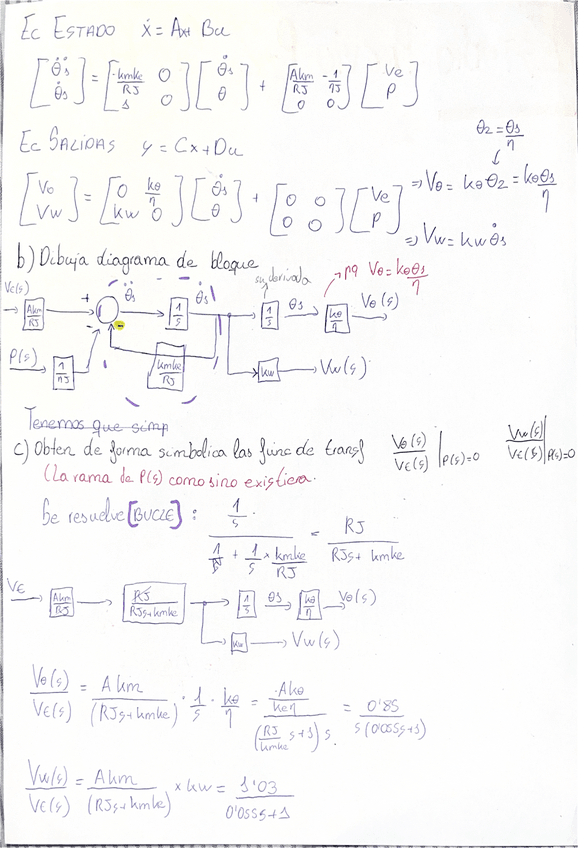 Ec ESTADO ẋ = Ax + Bu
[θ̈s; θ̇s] = [-kmke/RJ 0; 1 0] [θ̇s; θ] + [Akm/RJ -1/ηJ; 0 0] [Ve; P]
Ec SALIDAS y = Cx + Du
θ2 = θs/η
[Vθ; Vw] = [0 kθ/η; kw 0] [θ̇s; θ] + [0 0; 0 0] [Ve; P]
⇒ Vθ = kθ θ2 = kθ θs/η
⇒ Vw = kw θ̇s
b) Dibuja diagrama de bloque
su derivada
→ pq Vθ = kθθs/η
Ve(s) Akm/RJ + θ̈s 1/s θ̇s 1/s θs kθ/η Vθ(s)
P(s) 1/ηJ - - kmke/RJ kw Vw(s)
Tenemos que simp
c) Obten de forma simbolica las func de transf Vθ(s)/Vε(s)|P(s)=0 Vw(s)/Vε(s)|P(s)=0
(La rama de P(s) como si no existiera.
Se resuelve [BUCLE] : (1/s)/(1/1 + 1/s × kmke/RJ) = RJ/(RJs + kmke)
Vε Akm/RJ RJ/(RJs+kmke) 1/s θs kθ/η Vθ(s)
kw Vw(s)
Vθ(s)/Vε(s) = Akm/(RJs+kmke) · 1/s · kθ/η = (Akθ/keη)/((RJ/kmke s+1) s) = 0'85/(s(0'055s+1))
Vw(s)/Vε(s) = Akm/(RJs+kmke) × kw = 1'03/(0'055s+1)